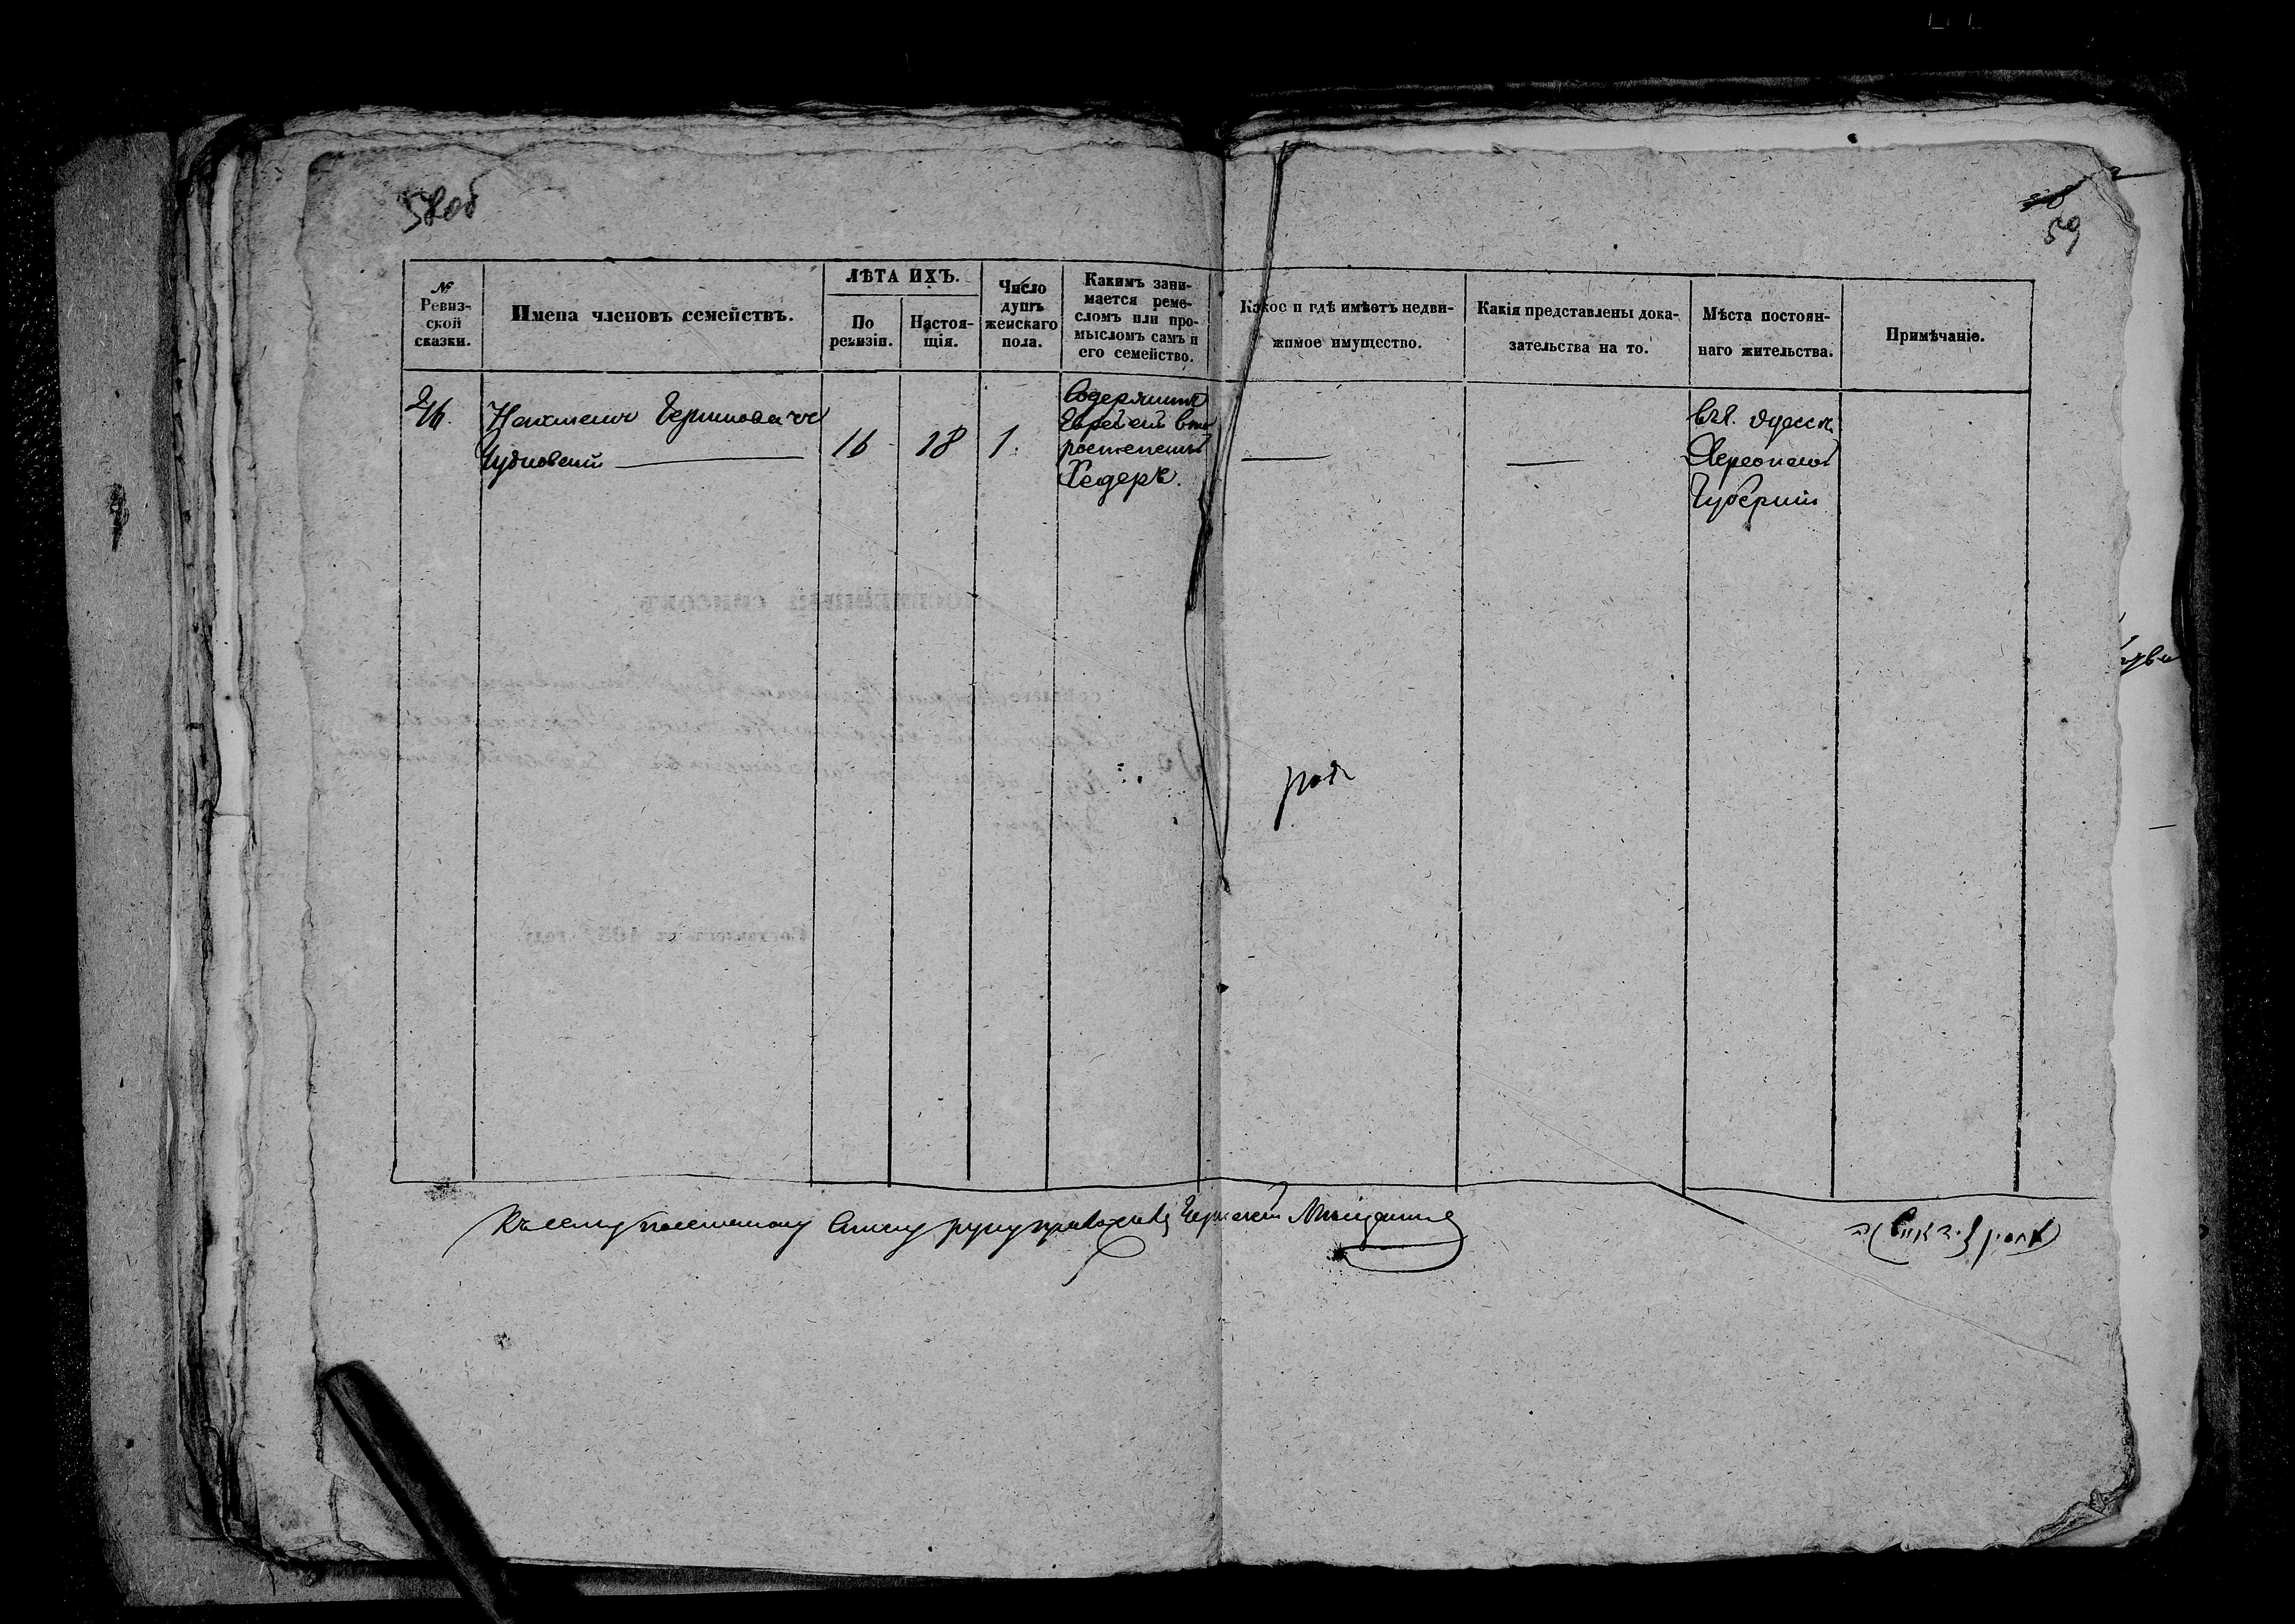 58об
59
№ Ревиз-
ской
сказки.
Имена членовъ семействъ.
ЛѢТА ИХЪ.
По
ревизіи.
Настоя-
щія.
Число
душъ
женскаго
пола.
Какимъ зани-
мается реме-
сломъ или про-
мысломъ самъ и
его семейство.
Какое и гдѣ имѣетъ недви-
жимое имущество.
Какія представлены дока-
зательства на то.
Мѣста постоян-
наго жительства.
Примѣчаніе.
Чудновскій
16
18
1.
Содержитъ
Еврейскій вто
ростепенный
Хедеръ.
въ г. Одессѣ
Херсонской
Губерніи
Къ сему посемейному списку руку приложилъ